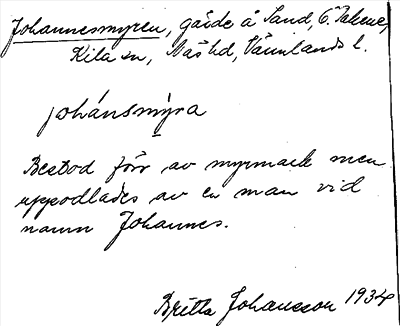 Johannesmyren, gärde å Sand, Ö. Takene,
Kila sn, Näs hd, Värmlands l.
johánsmỳra
Bestod förr av myrmark men
uppodlades av en man vid
namn Johannes.
Britta Johansson 1934